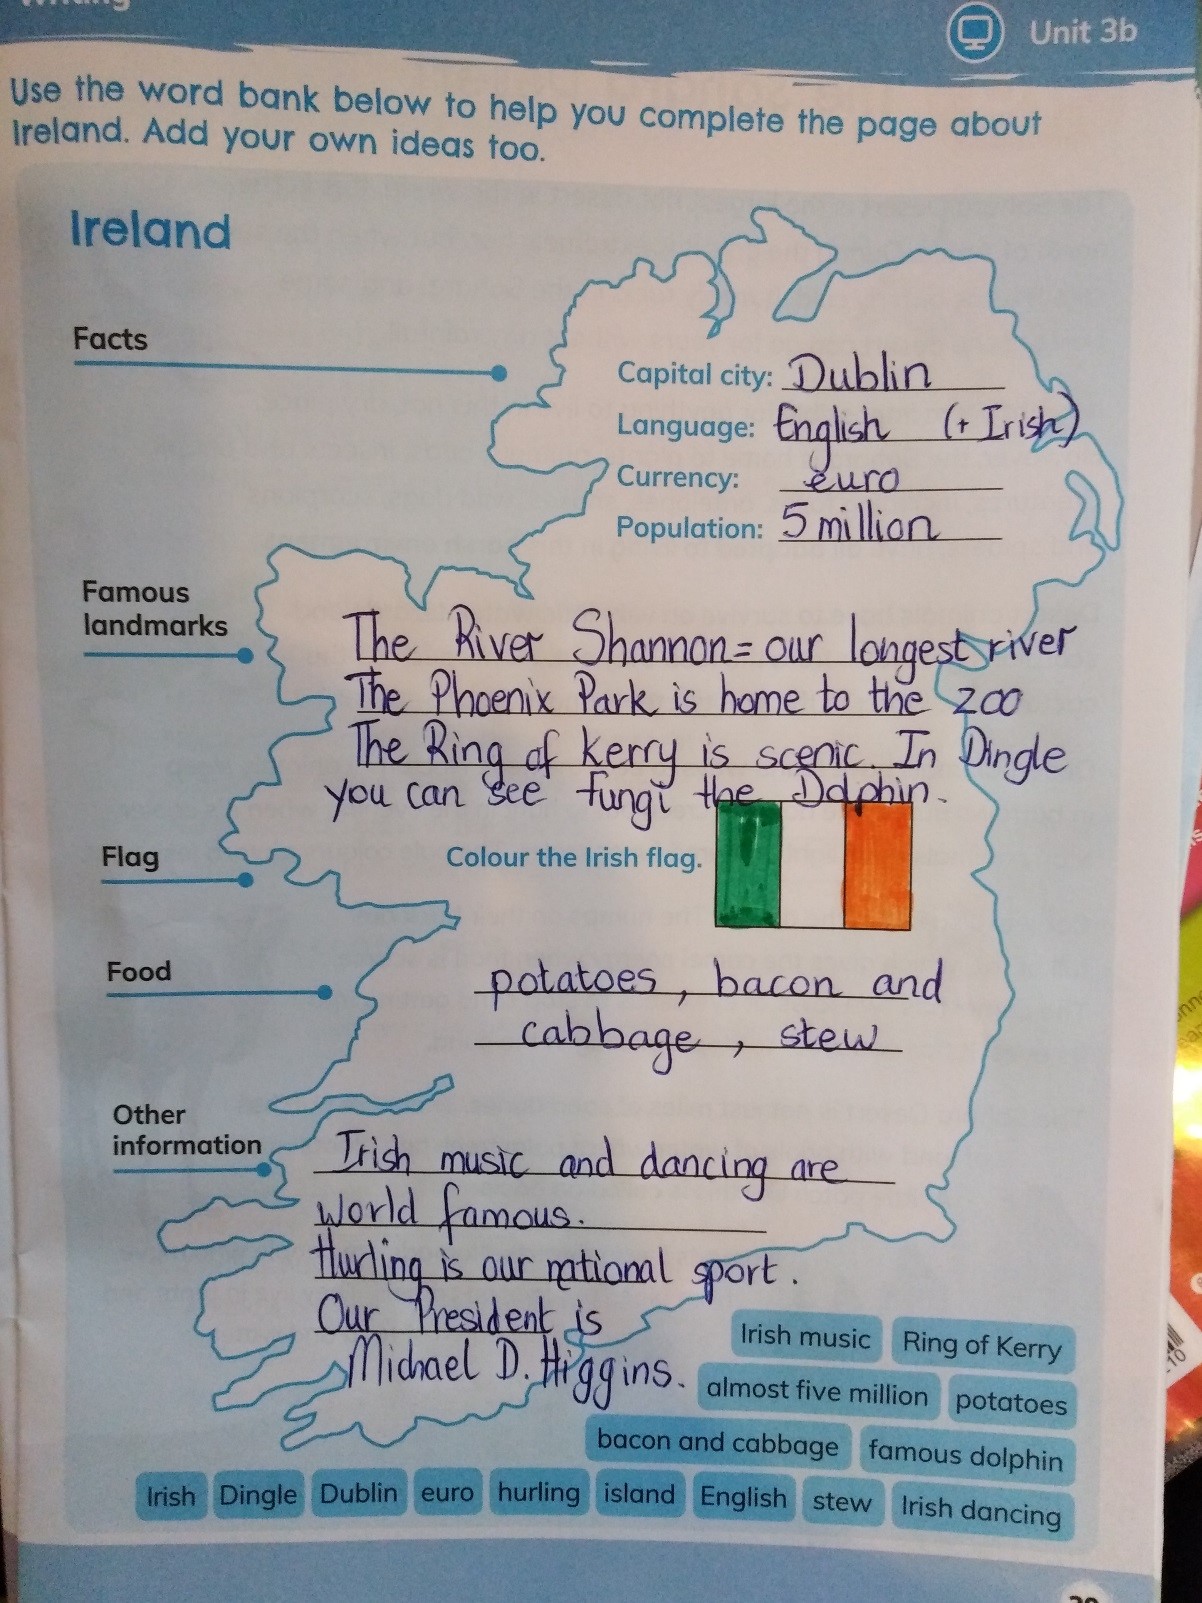 Writing
Unit 3b
Use the word bank below to help you complete the page about
Ireland. Add your own ideas too.
Ireland
Facts
Capital city: Dublin
Language: English (+ Irish)
Currency: euro
Population: 5 million
Famous
landmarks
The River Shannon = our longest river
The Phoenix Park is home to the zoo
The Ring of Kerry is scenic. In Dingle
you can see fungi the Dolphin.
Flag
Colour the Irish flag.
Food
potatoes, bacon and
cabbage, stew
Other
information
Irish music and dancing are
world famous.
Hurling is our national sport.
Our President is
Michael D. Higgins.
Irish music Ring of Kerry
almost five million potatoes
bacon and cabbage famous dolphin
Irish Dingle Dublin euro hurling island English stew Irish dancing